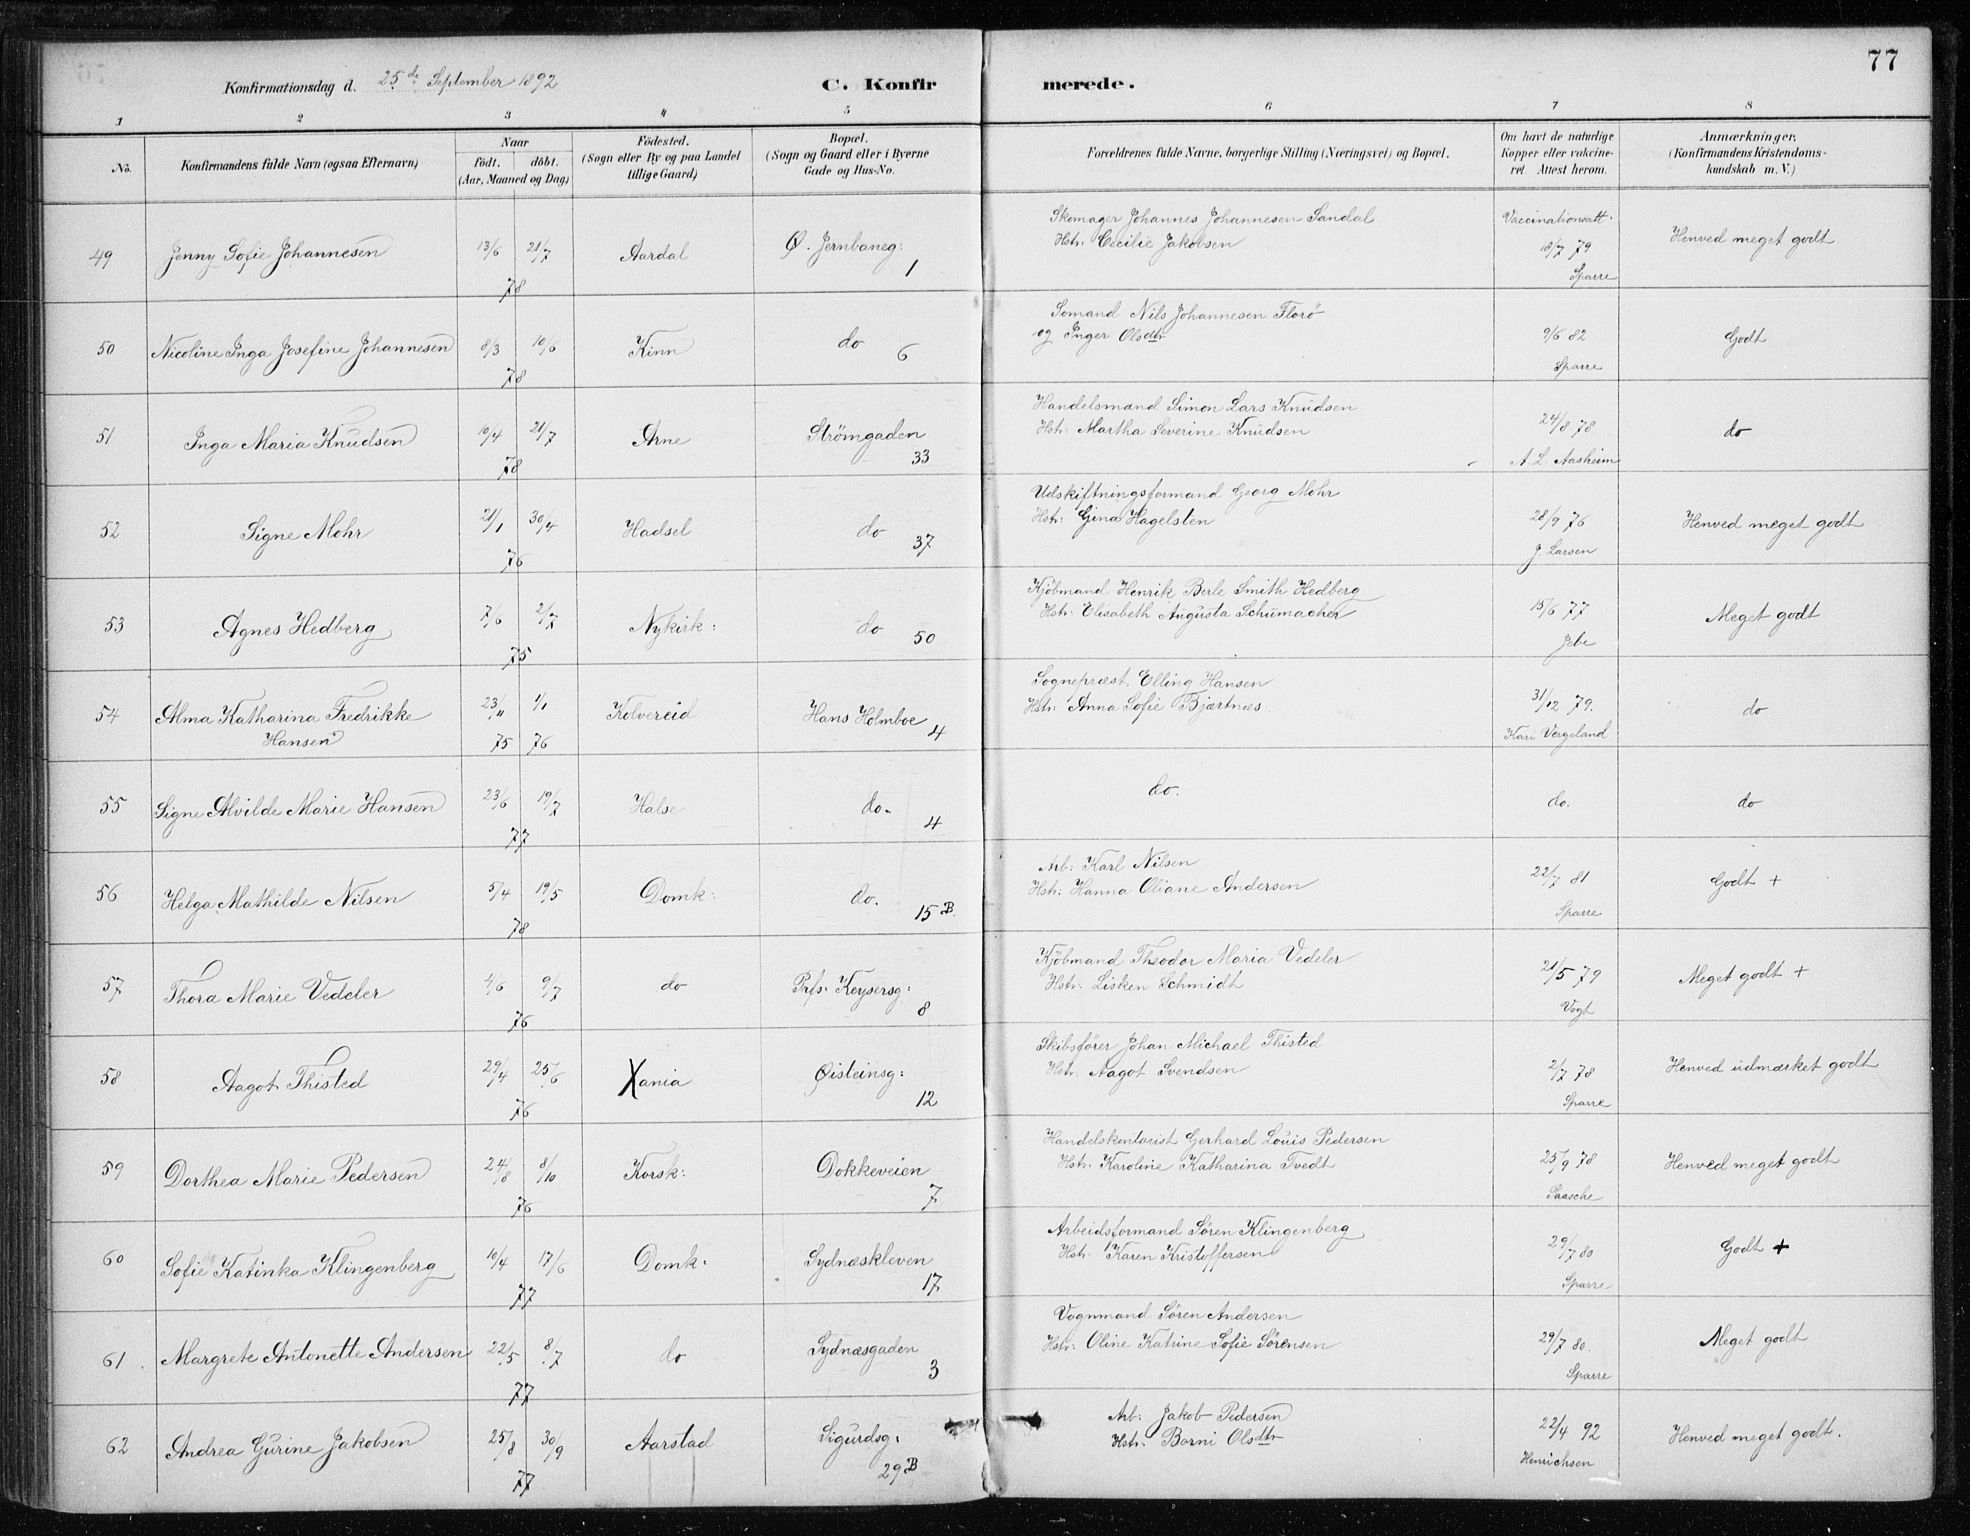 77
Konfirmationsdag d. 25de September 1892
C. Konfirmerede.
1 2 3 4 5 6 7 8
No. | Konfirmandens fulde Navn (ogsaa Efternavn) | Naar født. døbt. (Aar, Maaned og Dag) | Fødested. (Sogn eller By og paa Landet tillige Gaard) | Bopæl. (Sogn og Gaard eller i Byerne Gade og Hus-No. | Forældrenes fulde Navne, borgerlige Stilling (Næringsvei) og Bopæl. | Om havt de naturlige Kopper eller vakcineret. Attest herom. | Anmærkninger. (Konfirmandens Kristendomskundskab m. V.)
49 | Jenny Sofie Johannesen | 13/6 21/7 78 | Aardal | Ø. Jernbaneg: 1 | Skomager Johannes Johannesen Sandal Hstr: Cecilie Jakobsen | Vaccinationsatt. 18/7 79 Sparre | Henved meget godt
50 | Nicoline Inga Josefine Johannesen | 8/3 10/6 78 | Kinn | do 6 | Sømand Nils Johannesen Florø og Inger Olsdtr | 9/6 82 Sparre | Godt
51 | Inga Maria Knudsen | 10/4 21/7 78 | Arne | Strömgaden 33 | Handelsmand Simon Lars Knudsen Hstr: Martha Severine Knudsen | 24/8 78 A. L. Aasheim | do
52 | Signe Mohr | 21/1 30/4 76 | Hadsel | do 37 | Udskiftningsformand Georg Mohr Hstr: Gina Hagelsten | 28/9 76 J. Larsen | Henved meget godt
53 | Agnes Hedberg | 7/6 2/7 75 | Nykirk: | do 50 | Kjöbmand Henrik Berle Smith Hedberg Hstr: Elisabeth Augusta Schumacher | 15/6 77 Jebe | Meget godt
54 | Alma Katharina Fredrikke Hansen | 23/11 75 1/1 76 | Kolvereid | Hans Holmboe 4 | Sognepræst Elling Hansen Hstr: Anna Sofie Bjærtnæs. | 31/12 79. Kari Vergeland | do
55 | Signe Alvilde Marie Hansen | 23/6 19/7 77 | Halse | do. 4 | do. | do. | do
56 | Helga Mathilde Nilsen | 5/4 19/5 78 | Domk: | do. 15 B. | Arb: Karl Nilsen Hstr: Hanna Oliane Andersen | 22/7 81 Sparre | Godt +
57 | Thora Marie Vedeler | 4/6 9/7 76 | do | Prfs: Keysersg: 8 | Kjöbmand Theodor Maria Vedeler Hstr: Lisken Schmidt | 21/5 79 Vogt | Meget godt +
58 | Aagot Thisted | 29/4 25/6 76 | Xania | Øisteinsg: 12 | Skibsfører Johan Michael Thisted Hstr: Aagot Svendsen | 2/7 78 Sparre | Henved udmærket godt
59 | Dorthea Marie Pedersen | 24/8 8/10 76 | Korsk: | Dokkeveien 7 | Handelskontorist Gerhard Louis Pedersen Hstr: Karoline Katharina Tvedt | 25/9 78 Paasche | Henved meget godt
60 | Sofie Katinka Klingenberg | 10/4 17/6 77 | Domk. | Sydnæskleven 17. | Arbeidsformand Søren Klingenberg Hstr: Karen Kristoffersen | 29/7 80 Sparre | Godt +
61 | Margrete Antonette Andersen | 22/5 8/7 77 | do | Sydnæsgaden 3 | Vognmand Søren Andersen Hstr: Oline Katrine Sofie Sørensen | 29/7 80. Sparre | Meget godt
62 | Andrea Gurine Jakobsen | 25/8 30/9 77 | Aarstad | Sigurdsg: 29 B | Arb: Jakob Pedersen Hstr: Borni Olsdtr | 22/4 92 Henrichsen | Henved meget godt.